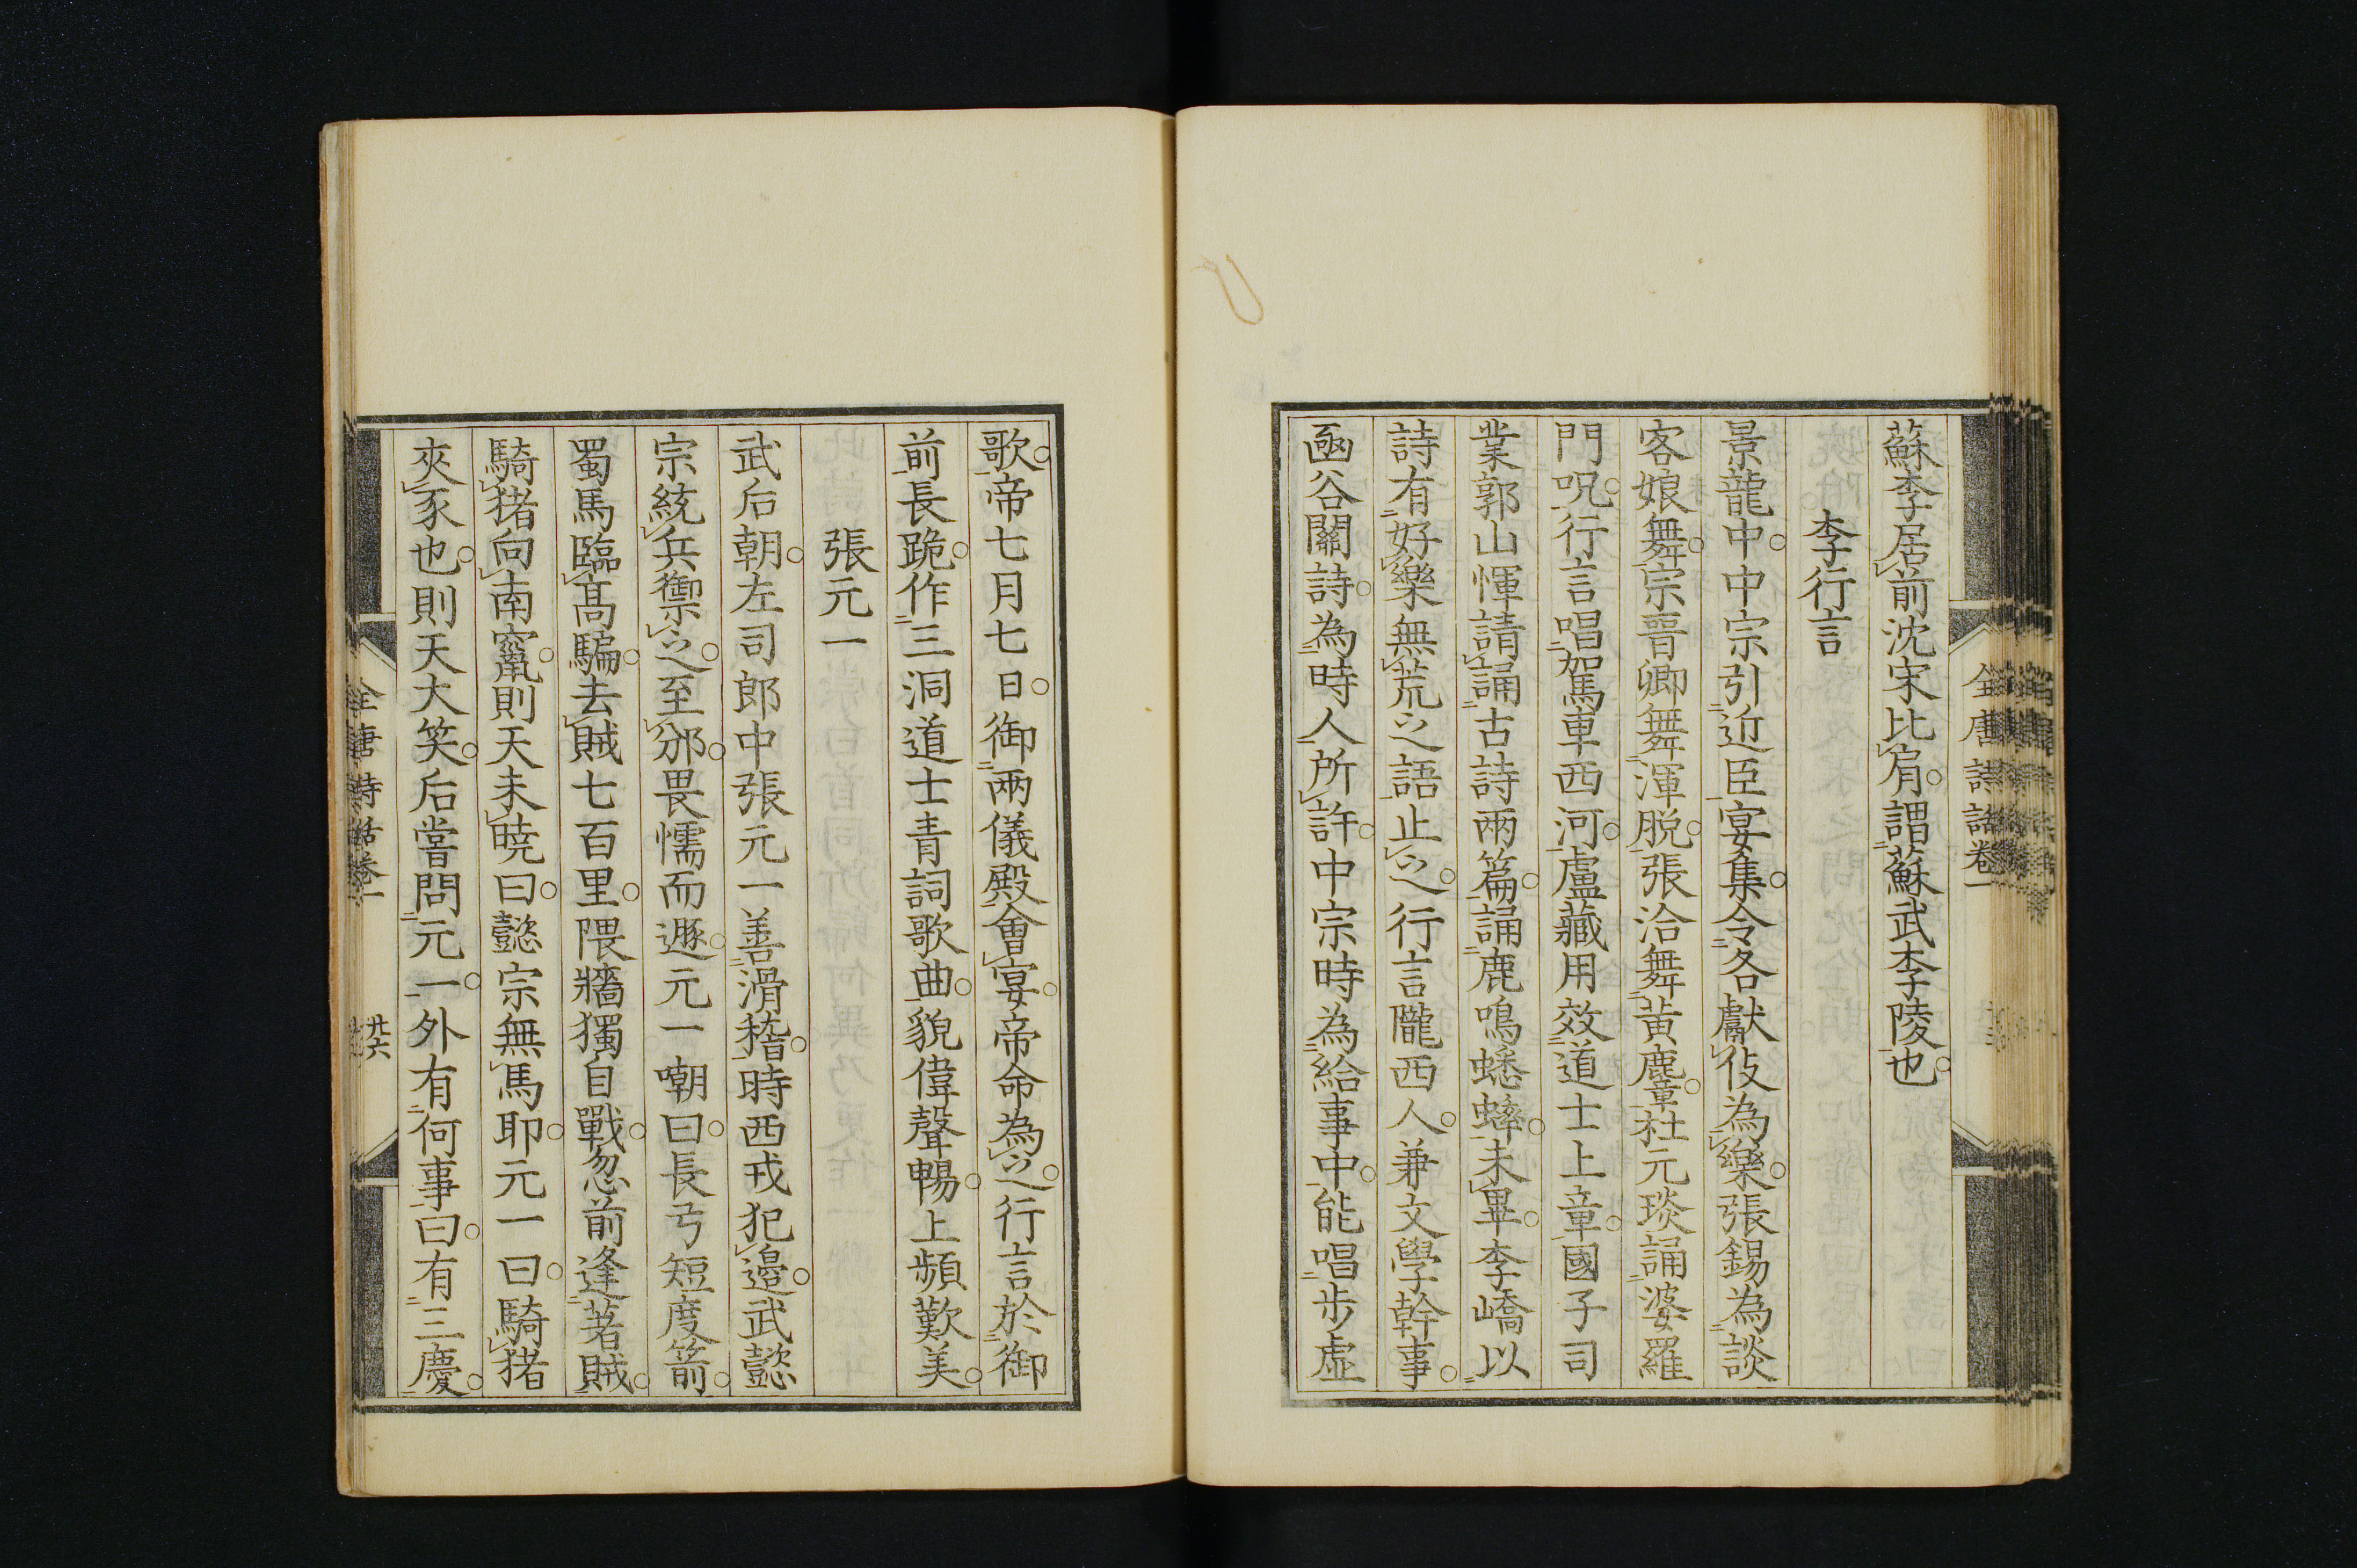 蘇李居前沈宋比肩謂蘇武李陵也
李行言
景龍中中宗引近臣宴集令各獻伎為樂張錫為談
客娘舞宗晉卿舞渾脱張洽舞黄麞杜元琰誦婆羅
門呪行言唱駕車西河盧藏用效道士上章國子司
業郭山惲請誦古詩兩篇誦鹿鳴蟋蟀未畢李嶠以
詩有好樂無荒之語止之行言隴西人兼文學幹事
函谷關詩為時人所許中宗時為給事中能唱步虚
歌帝七月七日御兩儀殿會宴帝命為之行言於御
前長跪作三洞道士青詞歌曲貌偉聲暢上頻歎美
張元一
武后朝左司郎中張元一善滑稽時西戎犯邉武懿
宗統兵禦之至邠畏懦而遯元一嘲曰長弓短度箭
蜀馬臨髙騙去賊七百里隈牆獨自戰忽前逢著賊
騎猪向南竄則天未曉曰懿宗無馬耶元一曰騎猪
夾豕也則天大笑后嘗問元一外有何事曰有三慶
全唐詩話卷一
全唐詩話卷一
廿六